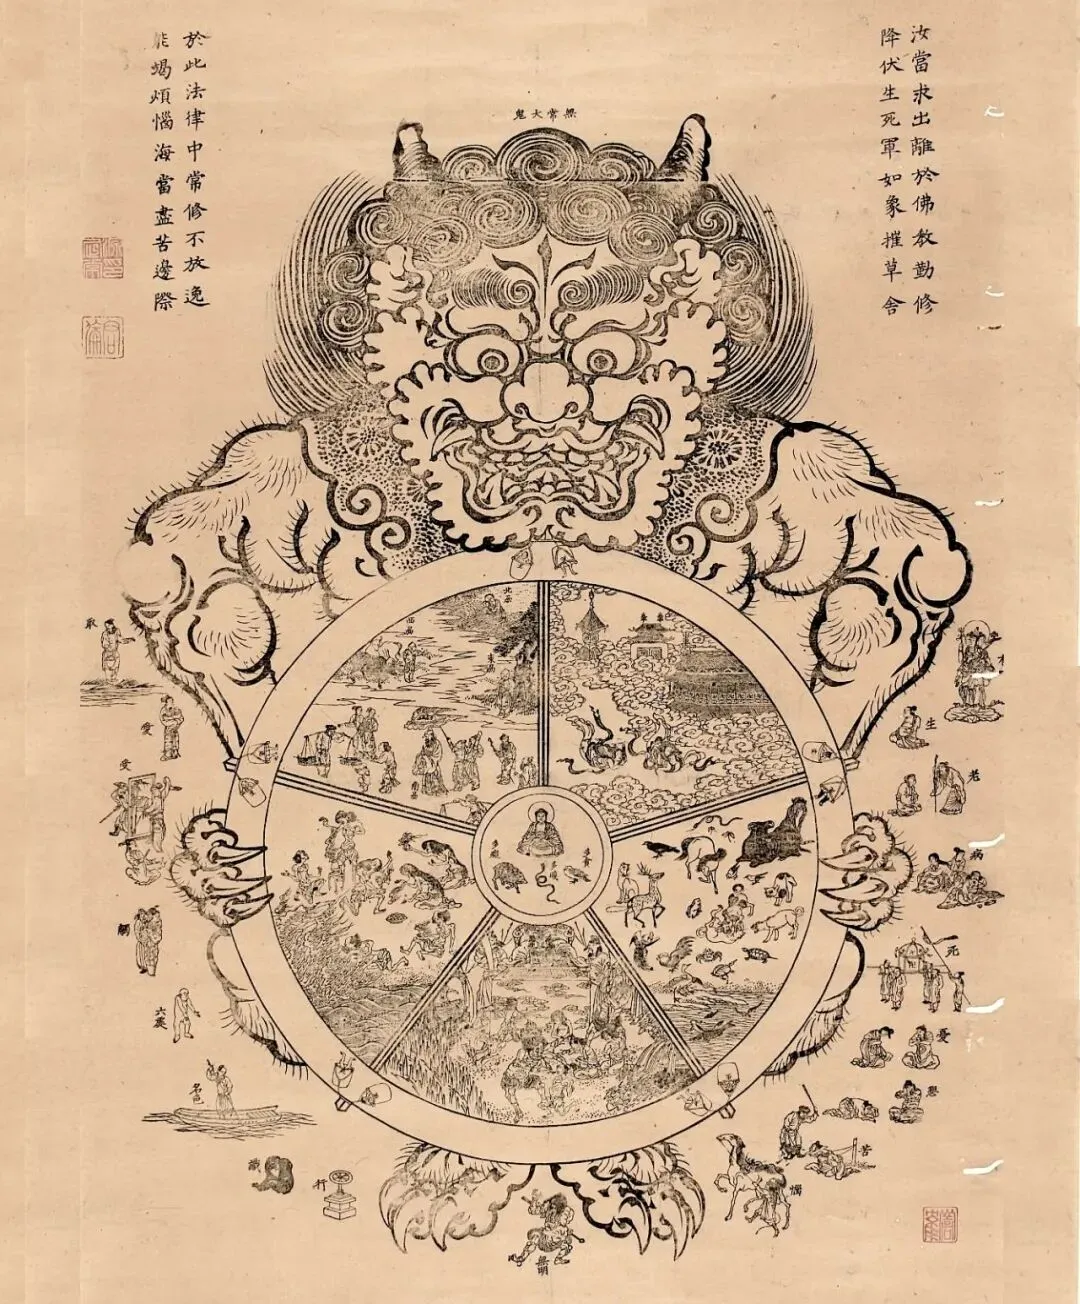 汝當求出離於佛教勤修
降伏生死軍如象摧草舍
無常大鬼
於此法律中常修不放逸
能竭煩惱海當盡苦邊際
生
老
病
死
憂
悲
苦
惱
無明
行
識
名色
六處
觸
受
愛
取